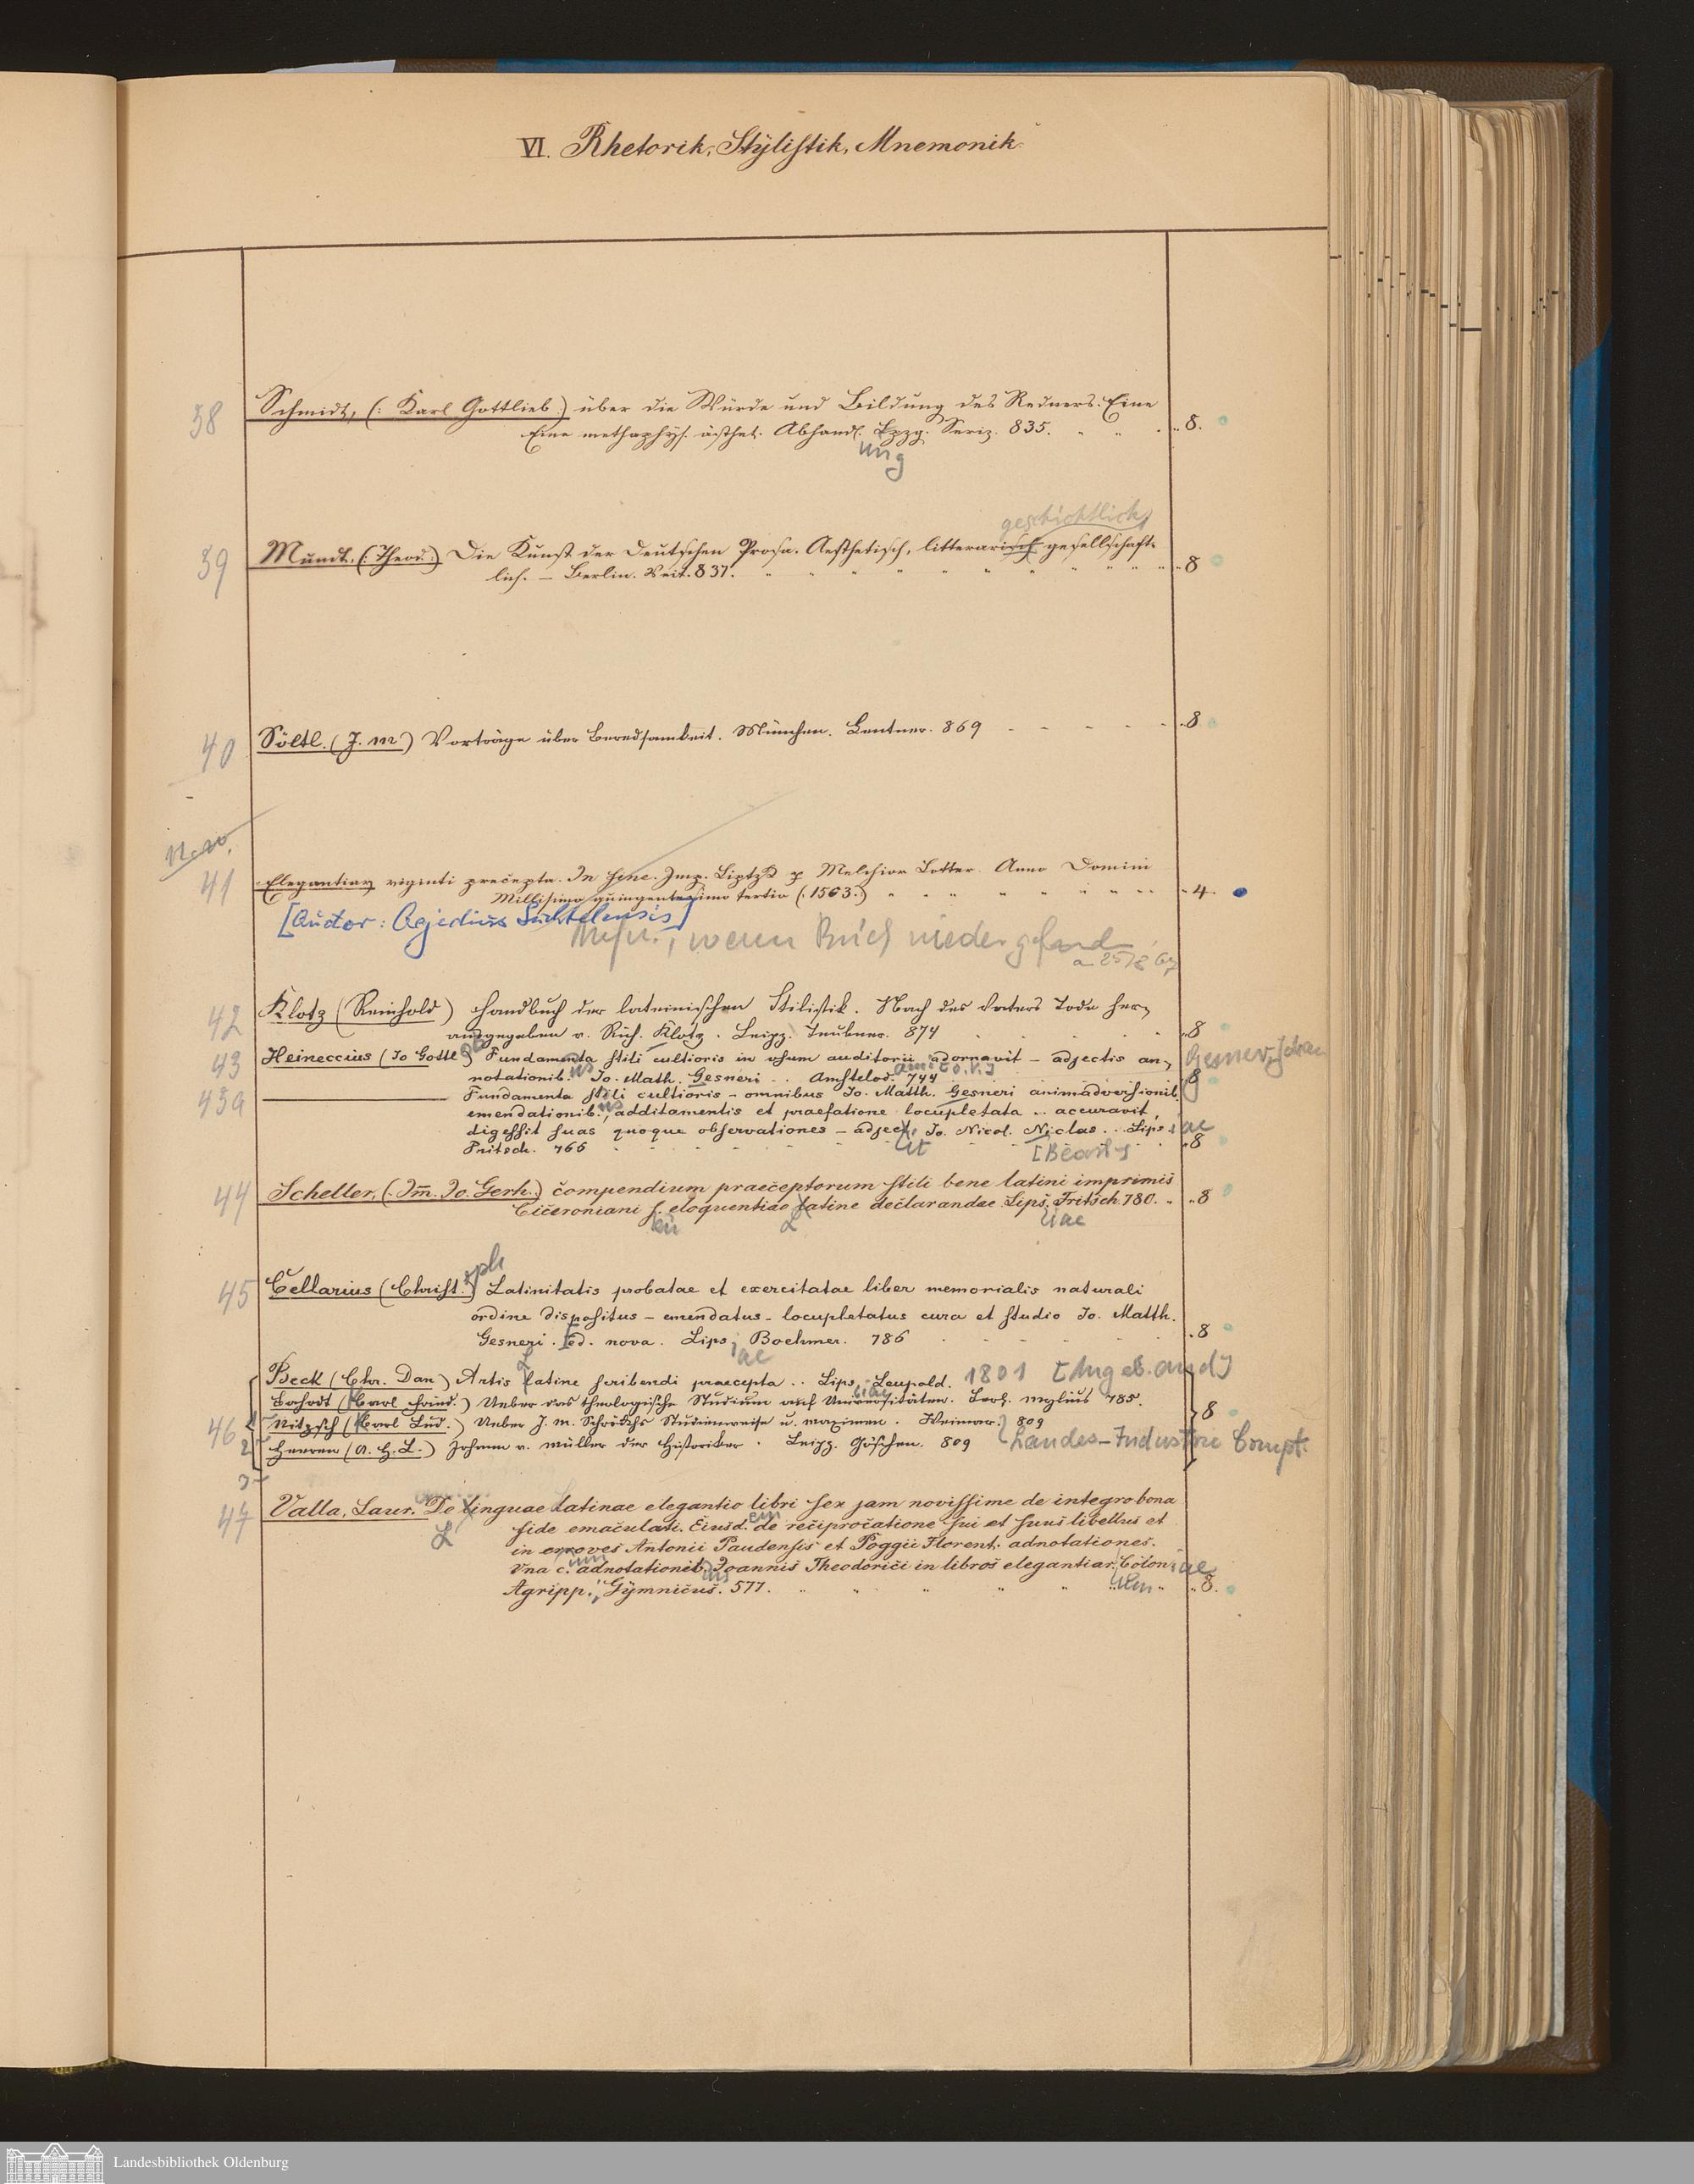 VI. Rhetorik, Stylistik, Mnemonik.
38 Schmidt, (: Karl Gottlieb.) über die Würde und Bildung des Redners. Eine
Eine methaphys. ästhet. Abhandl. Lpzg. 835. 8.
ung
geschichtlich,
39 Mundt, (: Theod:) Die Kunst der Deutschen Prosa. Aesthetisch, litterarisch gesellschaft-
lich. – Berlin. Veit. 837. 8
40 Söltl. (J. M.) Vorträge über Beredsamkeit. München. Lentner. 869 8
41 Elegantiar viginti precepta. In fine. Imp. Liptzk p Melchior Lotter. Anno Domini
Millisimo quingentesimo tertio (.1503.) 4.
[Autor: Aegidius Suchtelensis]
wenn Buch wieder gefund
42 Klotz (Reinhold) Handbuch der lateinischen Stilistik. Nach des Vaters Tode her-
ausgegeben v. Rich. Klotz. Leipz. Teubner. 874 8
43 Heineccius (Io Gottl.) Fundamenta stili cultioris in usum auditorii adornavit – adjectis an-
notationib. Io. Math. Gesneri .. Amstelod. 744 8
us
43a Fundamenta stili cultioris – omnibus Io. Matth. Gesneri animadversionib.
emendationib., additamentis et praefatione locupletata .. accuravit,
us
digessit suas quoque observationes – adjec. Io. Nicol. Niclas .. Lips. ae
Fritsch. 766 it 8
44 Scheller, (. Im̄. Io. Gerh.) compendium praeceptorum stili bene latini imprimis
Ciceroniani s. eloquentiae latine declarandae Lips. Fritsch 780. 8
eu L iae
oph
45 Cellarius (Christ.) Latinitatis probatae et exercitatae liber memorialis naturali
ordine dispositus – emendatus – locupletatus cura et studio Io. Matth.
Gesneri. Ed. nova. Lips. Boehmer. 786 8
iae
L
Beck (Chr. Dan) Artis latine scribendi praecepta .. Lips. Leupold. 1801 [Angeb. and]
Bahrdt (Carl Fried.) Ueber das theologische Studium auf Universitäten. Berl. Mylius 785. 8
46 Nitzsch (Carl Lud.) Ueber J. M. Schröckhs Studienweise u. Maximen. Weimar. 809
2 Heeren (A. H. L.) Johann v. Müller der Historiker. Leipz. Göschen. 809 Landes-Industrie Compt.
3
47 Valla, Laur. De linguae latinae elegantia libri sex jam novissime de integro bona
L fide emaculati. Eiusd. de reciprocatione sui et suus libellus et
in eosves Antonii Paudensis et Poggii Florent. adnotationes.
Vna c. adnotationib. Joannis Theodorici in libros elegantiar. Colon iae
um us um
Agripp., Gymnicus. 577. 8.
Landesbibliothek Oldenburg